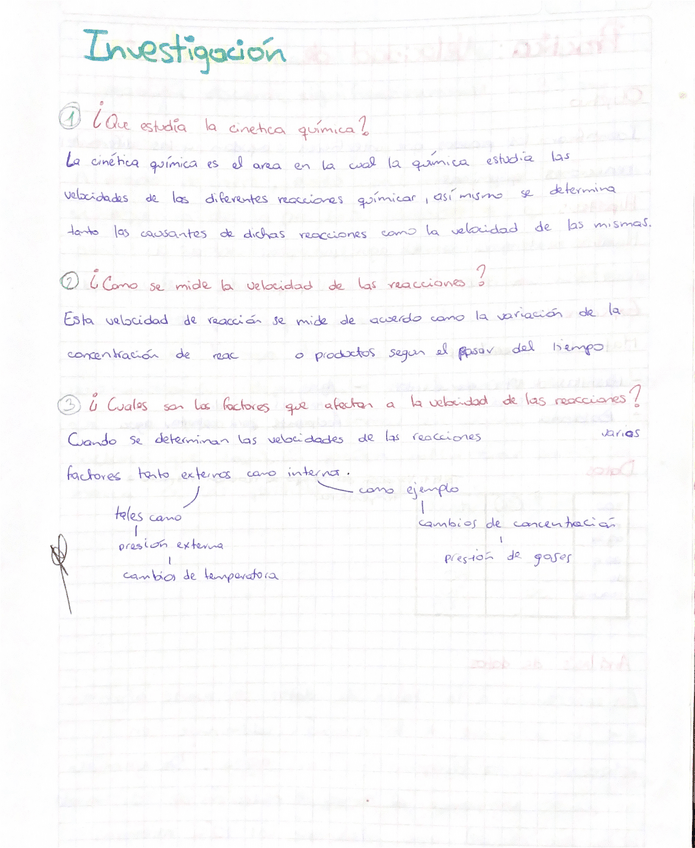 Investigación
1 ¿Que estudía la cinetica química?
La cinética química es el area en la cual la química estudia las
velocidades de las diferentes reacciones químicas, así mismo se determina
tanto los causantes de dichas reacciones como la velocidad de las mismas.
2 ¿Como se mide la velocidad de las reacciones?
Esta velocidad de reacción se mide de acuerdo como la variación de la
concentración de reac o productos segun el pasar del tiempo
3 ¿Cuales son los factores que afectan a la velocidad de las reacciones?
Cuando se determinan las velocidades de las reacciones varios
factores tanto externos como internos.
como ejemplo
tales como
cambios de concentración
presión externa
presión de gases
cambios de temperatura